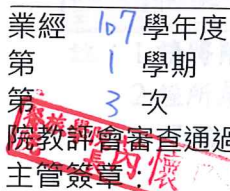 業經 107 學年度
第 1 學期
第 3 次
院教評會審查通過
主管簽章：
學院
長 芮懷